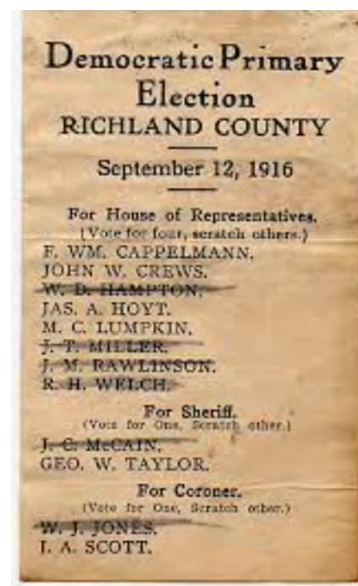 Democratic Primary
Election
RICHLAND COUNTY
September 12, 1916
For House of Representatives.
(Vote for four, scratch others.)
F. WM. CAPPELMANN.
JOHN W. CREWS.
W. D. HAMPTON.
JAS. A. HOYT.
M. C. LUMPKIN.
J. T. MILLER.
J. M. RAWLINSON.
R. H. WELCH.
For Sheriff.
(Vote for One, Scratch other.)
J. C. McCAIN.
GEO. W. TAYLOR.
For Coroner.
(Vote for One, Scratch other.)
W. J. JONES.
J. A. SCOTT.